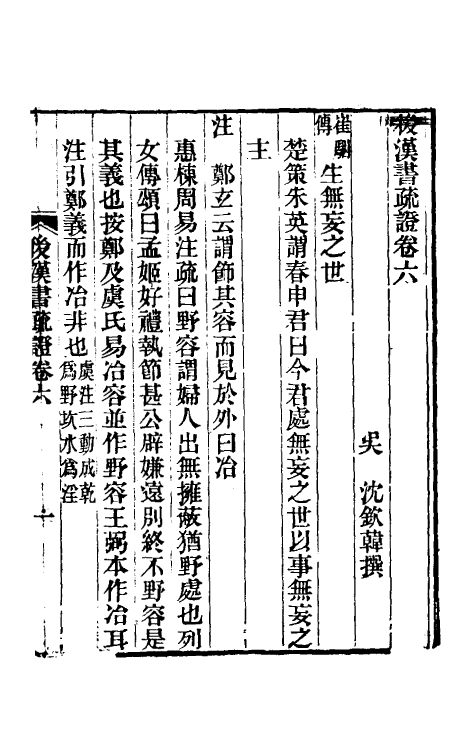 後漢書疏證卷六
吳 沈欽韓撰
崔駰傳 生無妄之世
楚策朱英謂春申君曰今君處無妄之世以事無妄之
主
注 鄭玄云謂飾其容而見於外曰冶
惠棟周易注疏曰野容謂婦人出無擁蔽猶野處也列
女傳頌曰孟姬好禮執節甚公辟嫌遠別終不野容是
其義也按鄭及虞氏易冶容並作野容王弼本作冶耳
注引鄭義而作冶非也虞注三動成乾爲野坎水爲淫
後漢書疏證卷六 一